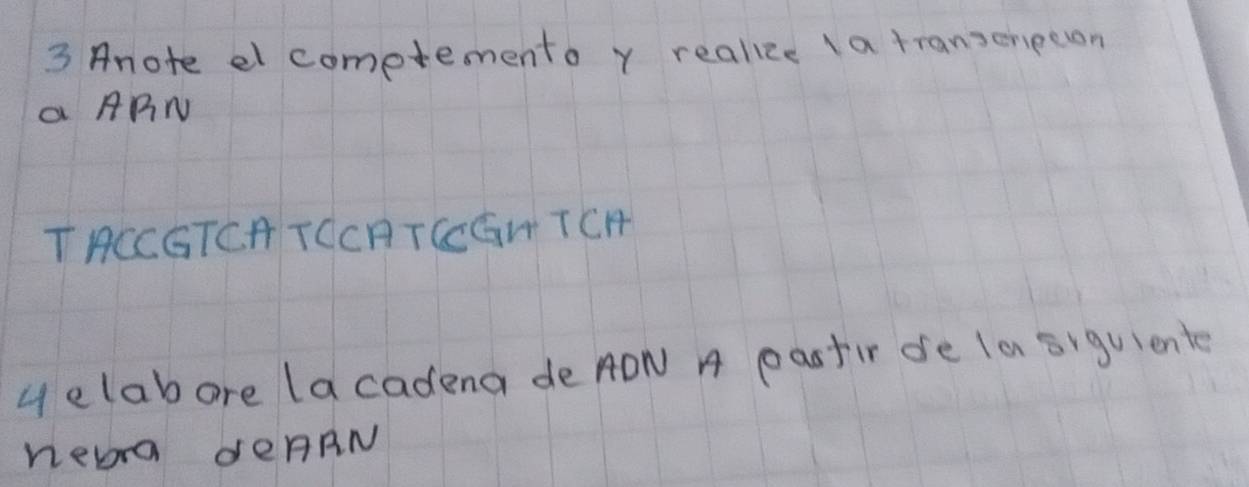 3 Anote el comptemento y realice la transcripcion
a ARN
TACCGTCATCCATCCGATCA
4 elabore la cadena de ADN A pastir de la siguiente
hebra de ARN